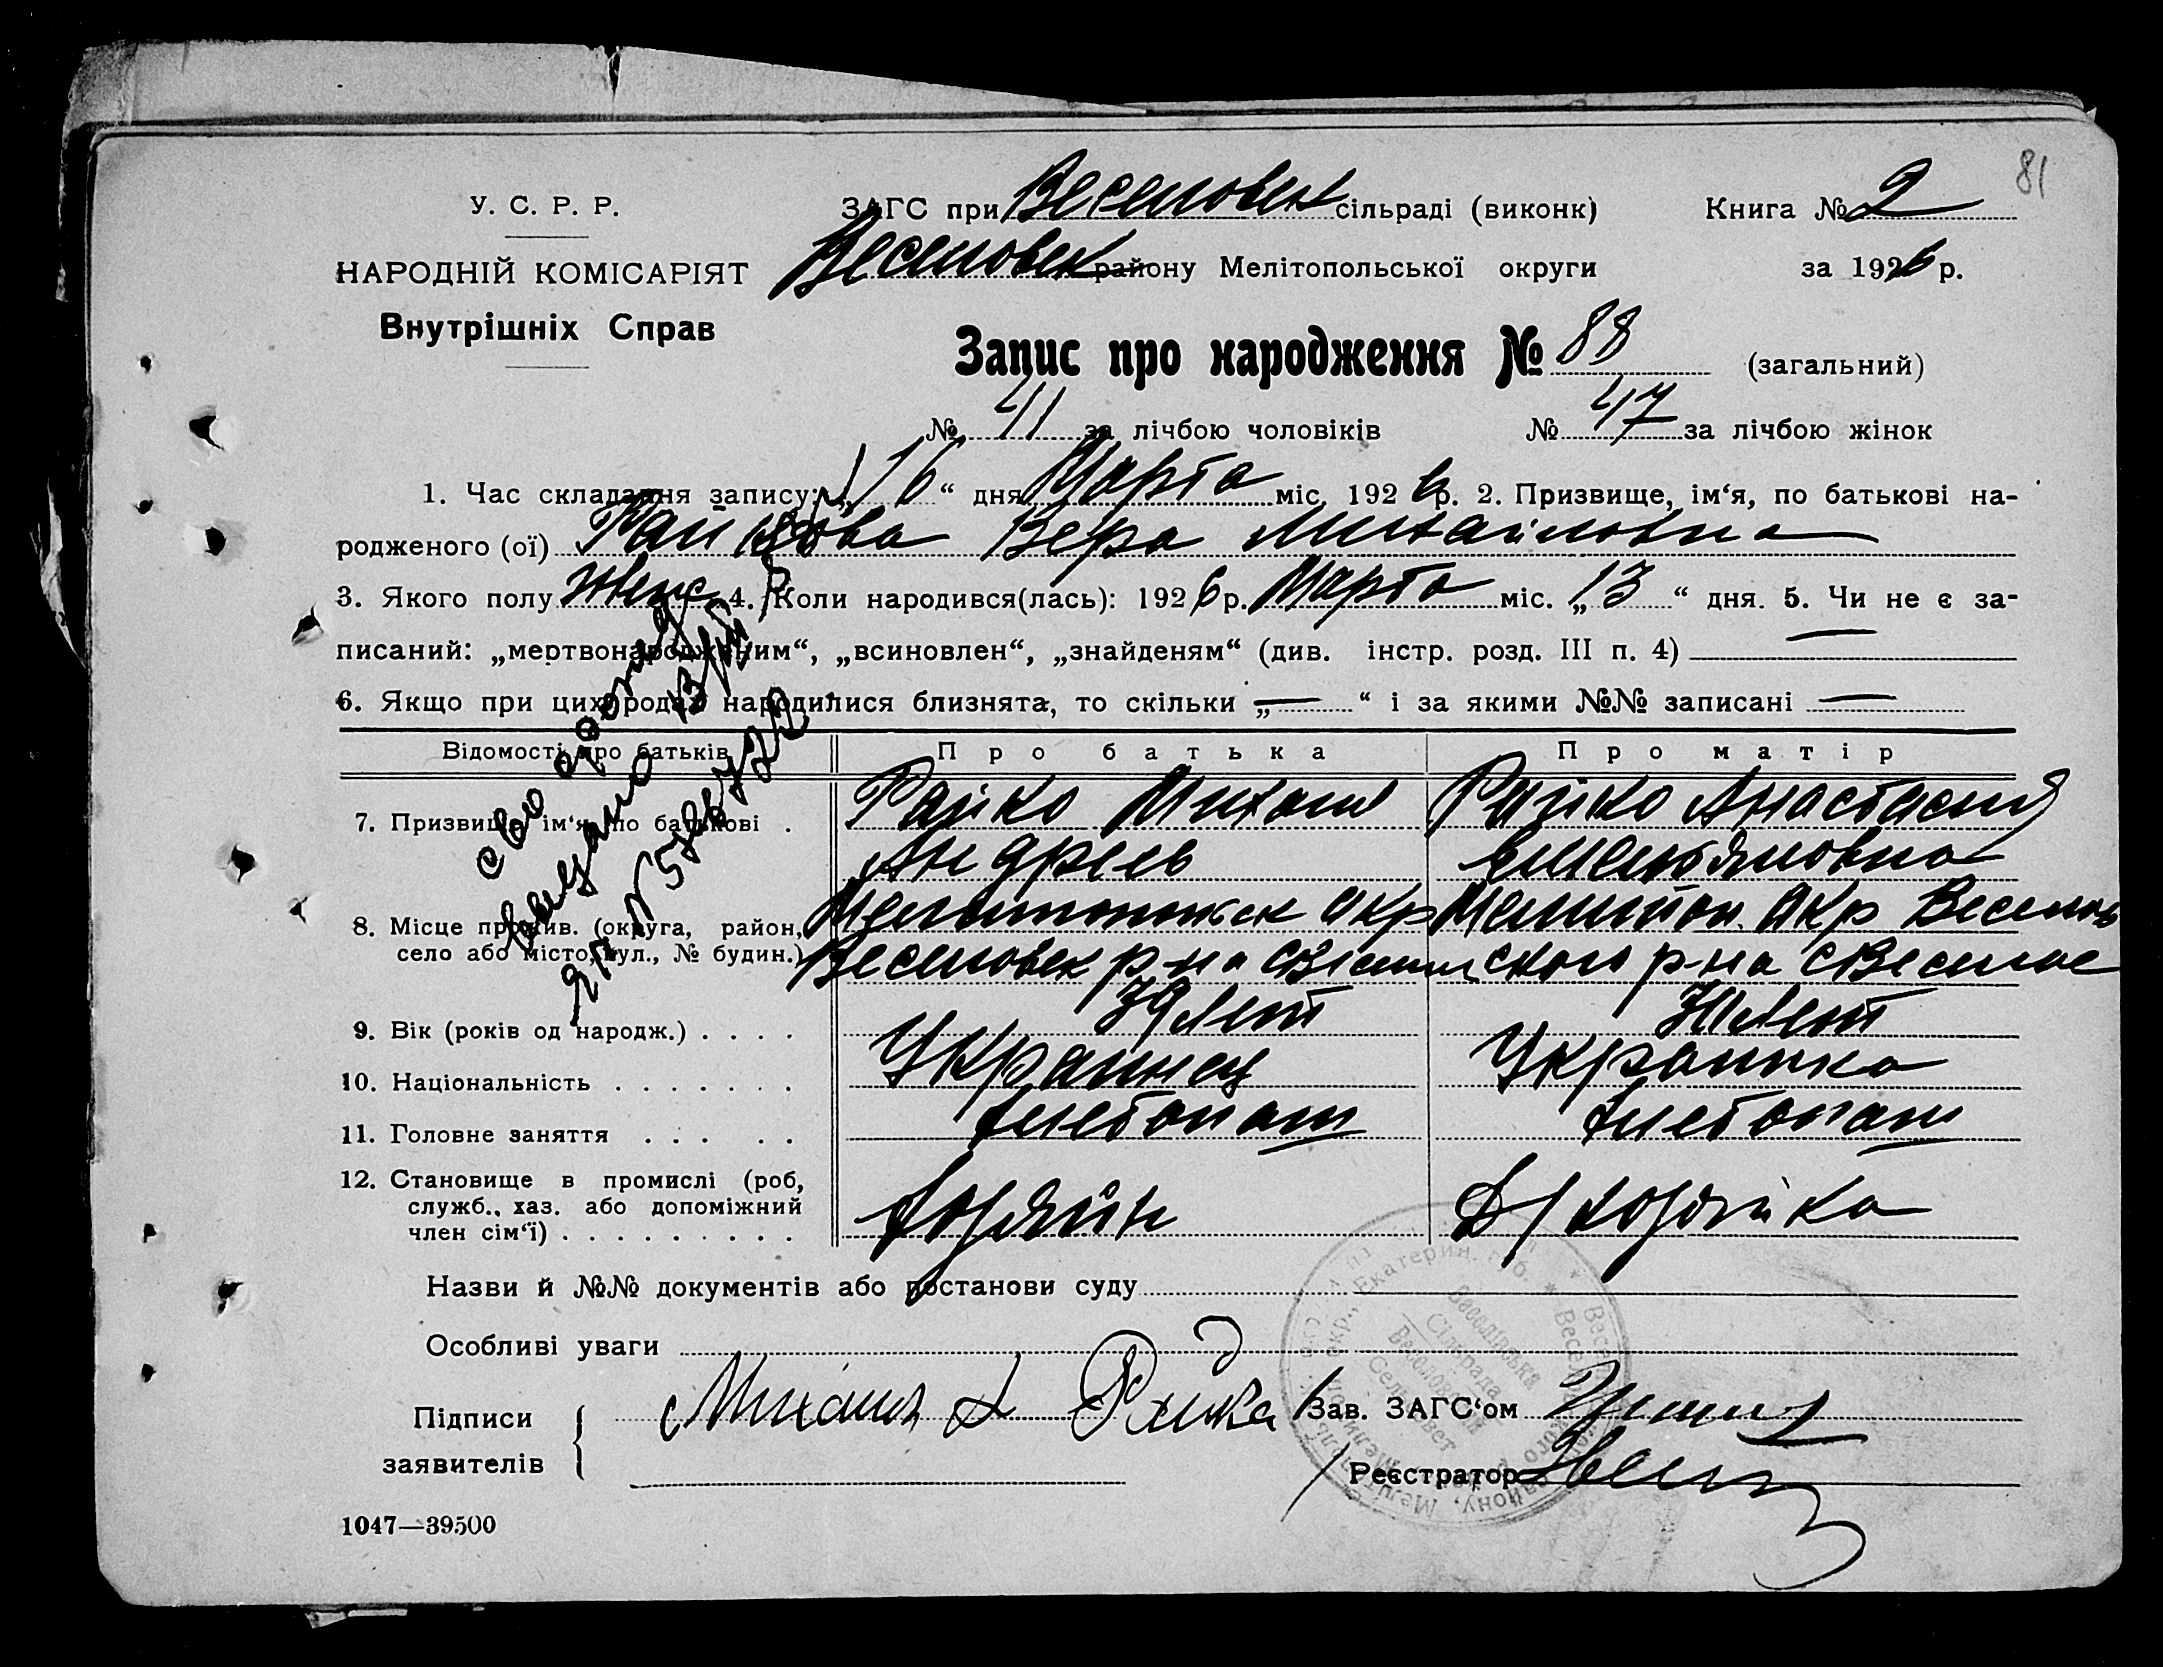 81
У. С. Р. Р.
НАРОДНІЙ КОМІСАРІЯТ
Внутрішніх Справ
ЗАГС при Веселовск сільраді (виконк) Книга № 2
Веселовск району Мелітопольської округи за 1926 р.
Запис про народження № 88 (загальний)
№ 41 за лічбою чоловіків № 47 за лічбою жінок
1. Час складання запису: „16“ дня Марта міс. 1926 р. 2. Призвище, ім‘я, по батькові на-
родженого (ої) Вера Михайловна
3. Якого полу женс 4. Коли народився(лась): 1926 р. Марта міс. „13“ дня. 5. Чи не є за-
писаний: „мертвонародженим“, „всиновлен“, „знайденям“ (див. інстр. розд. III п. 4) —
6. Якщо при цих родах народилися близнята, то скільки „—“ і за якими №№ записані —
Відомості про батьків Про батька Про матір
7. Призвище, ім‘я, по батькові . Райко Михаил Райко Анастасия
Андреев Емельяновна
8. Місце прожив. (округа, район, Мелитопольск окр Мелитоп. окр Веселов
село або місто, вул., № будин.) Веселовск р-на с Веселое ского р-на с Веселое
9. Вік (років од народж.) . . . . лет лет
10. Національність . . . . . . . Украинец Украинка
11. Головне заняття . . . . . Хлебопаш Хлебопаш
12. Становище в промислі (роб,
служб., хаз. або допоміжний
член сім‘ї) . . . . . . . . . Хозяин Д/хозяйка
Назви й №№ документів або постанови суду
Особливі уваги
Підписи Михаил А Райка Зав. ЗАГС‘ом
заявителів Реєстратор
1047—39500
св о рожд
выдано
ЯП №